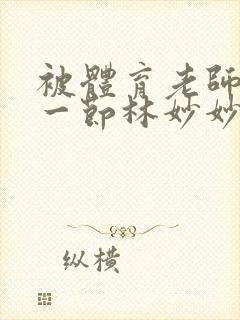 被體育老師
一節林妙妙
纵横